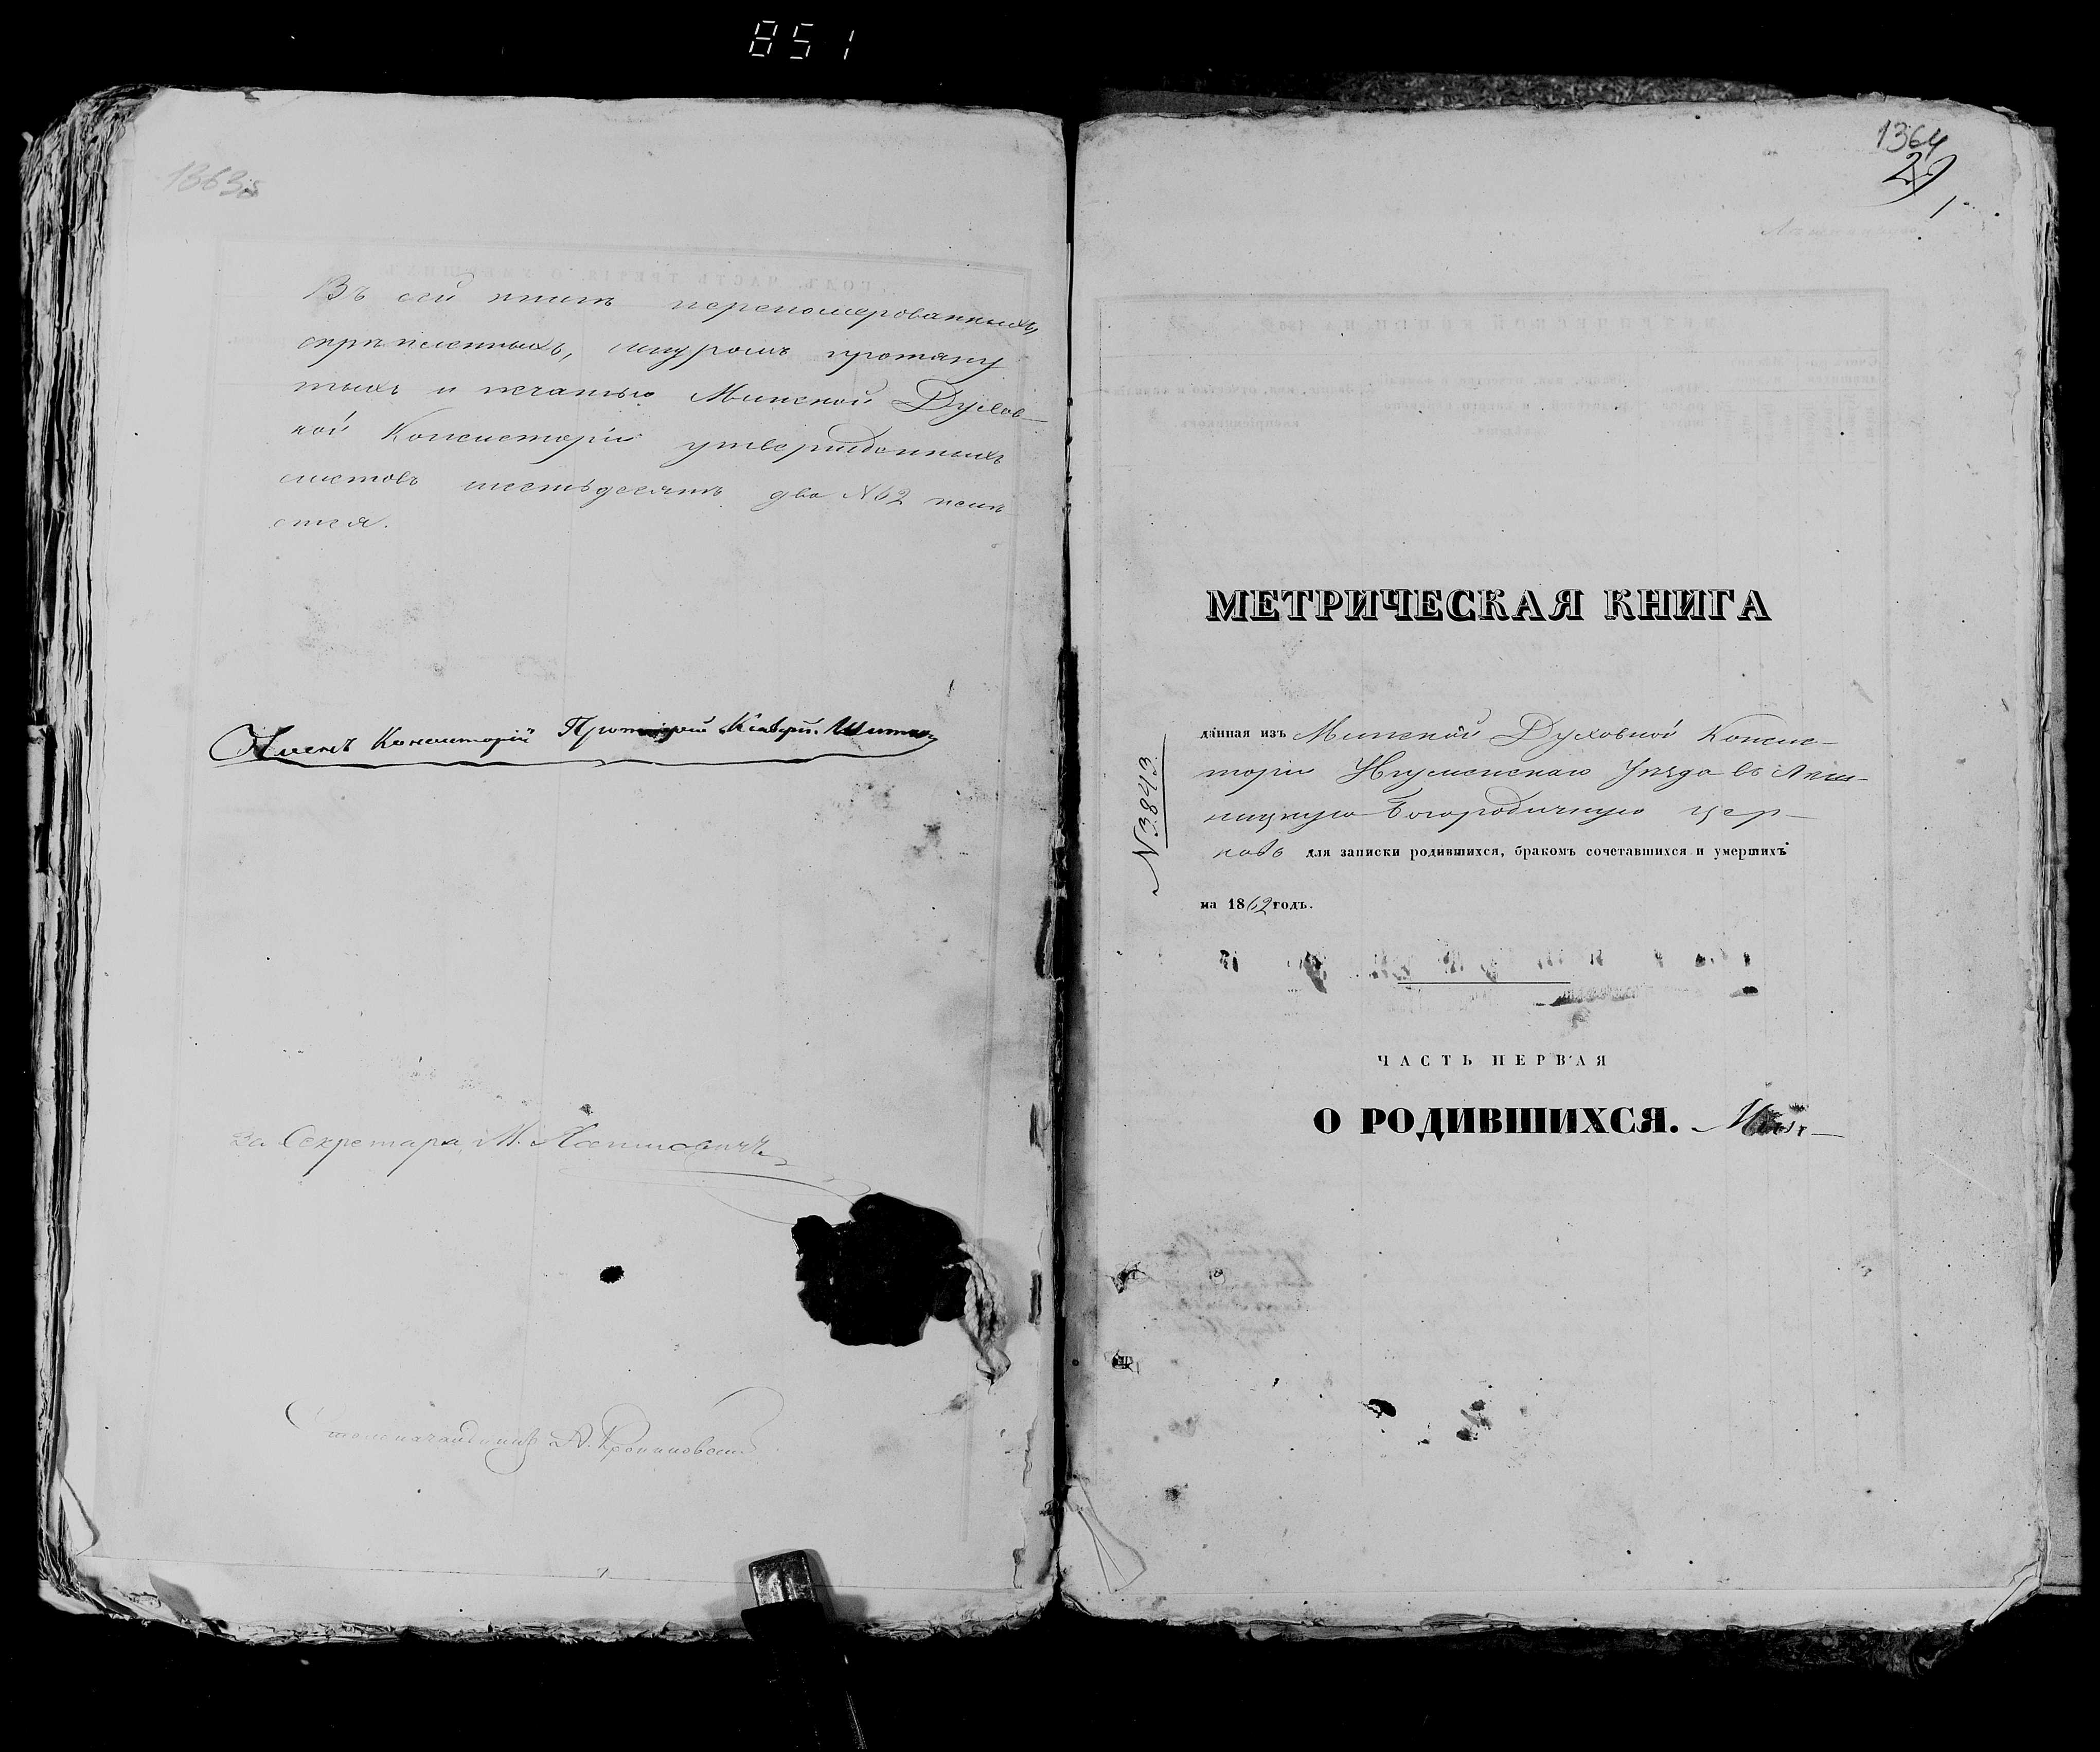 851
1363об
Въ сей книгѣ перепомерованныхъ,
скрѣпленныхъ, шнуромъ протяну
тыхъ и печатью Минской Духов-
ной Консисторіи утвержденныхъ
листовъ шестьдесятъ два №62 нахо
дится.
Членъ Консисторіи Протоіерей
За Секретаря, М.
Столоначальникъ А.
1364
29
1
МЕТРИЧЕСКАЯ КНИГА
данная изъ Минской Духовной Консис-
торіи Игуменскаго Уѣзда въ Ляш-
ницкую Богородичную цер-
ковь для записки родившихся, бракомъ сочетавшихся и умершихъ
на 1862 годъ.
№3843
ЧАСТЬ ПЕРВАЯ
О РОДИВШИХСЯ.